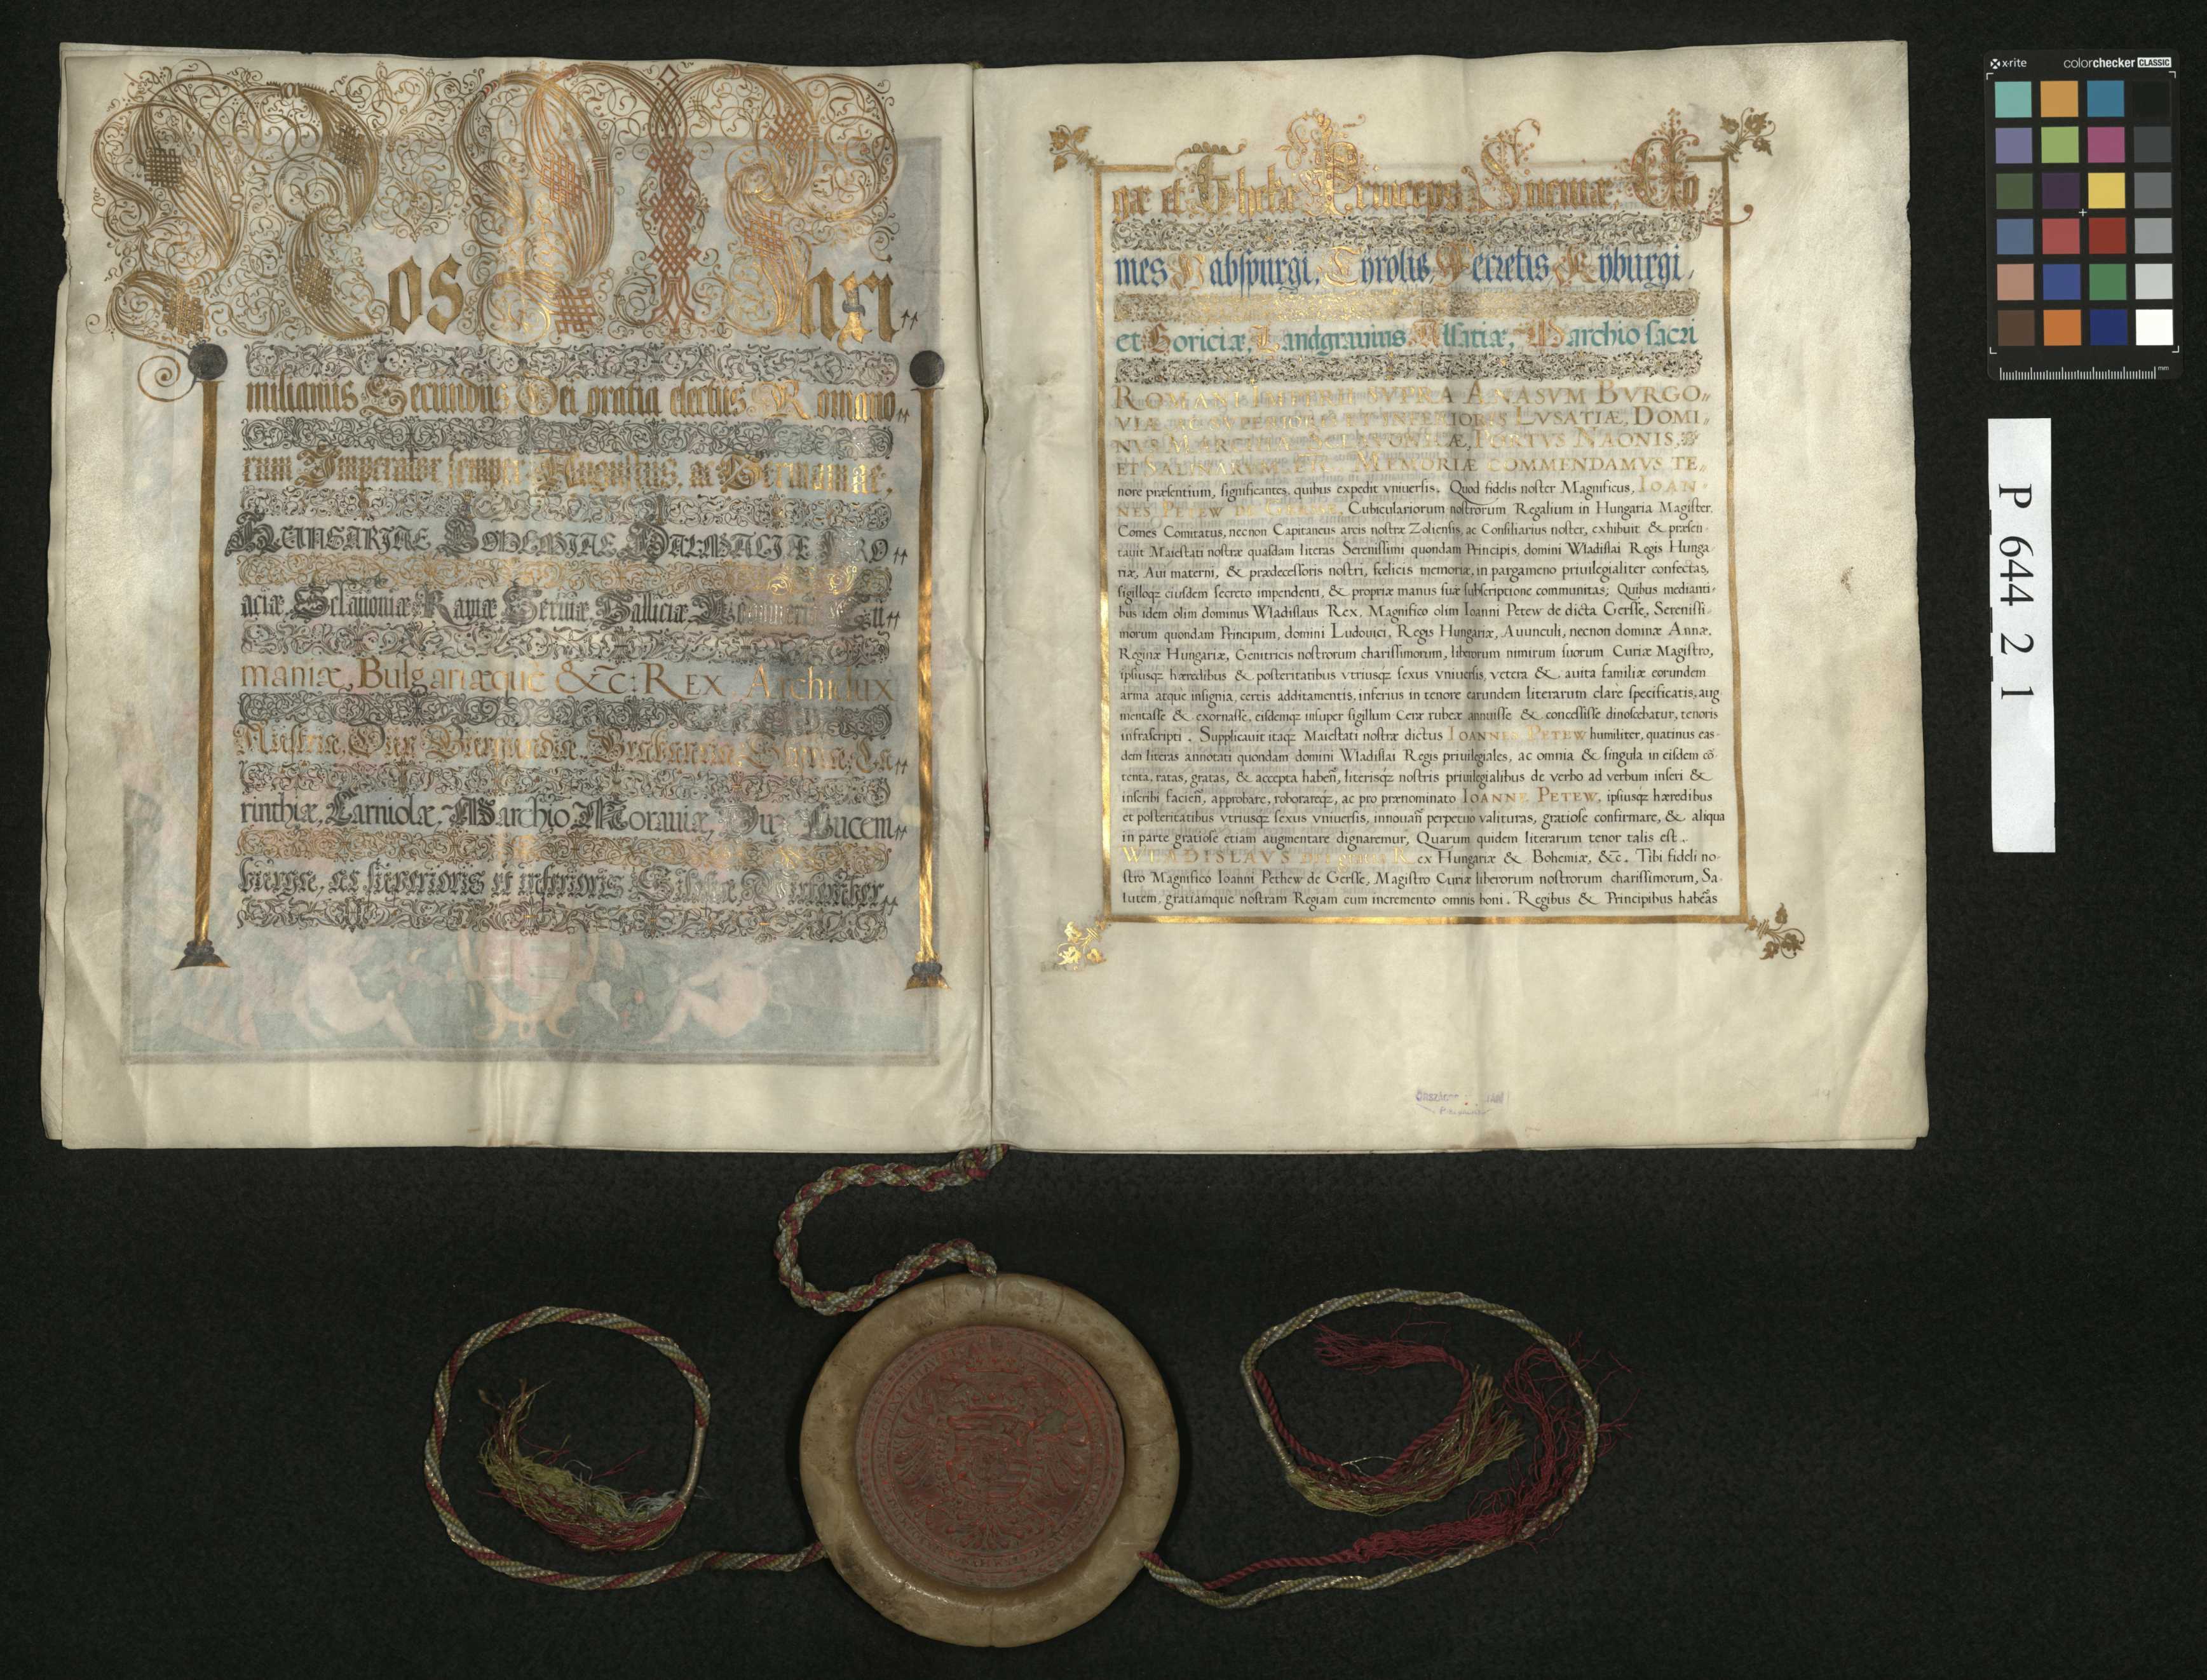 Nos Maxi
milianus Secundus Dei gratia electus Romano
rum Imperator semper Augustus, ac Germaniæ,
HUNGARIAE BOHEMIAE DALMATIAE CRO
aciæ, Sclauoniæ, Ramæ Seruiæ, Galliciæ
maniæ, Bulgariæque &c: REX Archidux
Austriæ, Dux Burgundiæ, Brabantiæ, Styriæ, Ca
rinthiæ, Carniolæ, Marchio Morauiæ, Dux Lucem
burgæ, ac superioris et inferioris Silesiæ, Wirtember
gæ et Thekæ Princeps Sueuiæ, Co
mes Habspurgi, Tyrolis, Ferretis, Kyburgi,
et Goriciæ, Landgrauius Alsatiæ, Marchio sacri
ROMANI IMPERII SVPRA ANASVM BVRGO
VIÆ, AC SVPERIORIS ET INFERIORIS LVSATIÆ, DOMI
NVS MARCHIÆ SCLAVONICÆ, PORTVS NAONIS,
ET SALINARVM, ETC. MEMORIÆ COMMENDAMVS TE
nore præsentium, significantes, quibus expedit vniuersis. Quod fidelis noster Magnificus, IOAN
NES PETEW DE GERSSE, Cubiculariorum nostrorum Regalium in Hungaria Magister,
Comes Comitatus, necnon Capitaneus arcis nostræ Zoliensis, ac Consiliarius noster, exhibuit & præsen
tauit Maiestati nostræ quasdam literas Serenissimi quondam Principis, domini Wladislai Regis Hunga
riæ, Aui materni, & prædecessoris nostri, fœlicis memoriæ, in pargameno priuilegialiter confectas,
sigilloqz eiusdem secreto impendenti, & propriæ manus suæ subscriptione communitas; Quibus medianti
bus idem olim dominus Wladislaus Rex, Magnifico olim Ioanni Petew de dicta Gersse, Serenissi
morum quondam Principum, domini Ludouici, Regis Hungariæ, Auunculi, necnon dominæ Annæ,
Reginæ Hungariæ, Genitricis nostrorum charissimorum, liberorum nimirum suorum Curiæ Magistro,
ipsiusqz hæredibus & posteritatibus vtriusqz sexus vniuersis, vetera & auita familiæ eorundem
arma atque insignia, certis additamentis, inferius in tenore earundem literarum clare specificatis, aug
mentasse & exornasse, eisdemqz insuper sigillum Ceræ rubeæ annuisse & concessisse dinoscebatur, tenoris
infrascripti. Supplicauit itaqz Maiestati nostræ dictus IOANNES PETEW humiliter, quatinus eas
dem literas annotati quondam domini Wladislai Regis priuilegiales, ac omnia & singula in eisdem cõ
tenta, ratas, gratas, & accepta habeñ, literisqz nostris priuilegialibus de verbo ad verbum inseri &
inscribi facieñ, approbare, roborareqz, ac pro prænominato IOANNE PETEW, ipsiusqz hæredibus
et posteritatibus vtriusqz sexus vniuersis, innouañ perpetuo valituras, gratiose confirmare, & aliqua
in parte gratiose etiam augmentare dignaremur, Quarum quidem literarum tenor talis est.
WLADISLAVS Dei gratia Rex Hungariæ & Bohemiæ, &c. Tibi fideli no
stro Magnifico Ioanni Pethew de Gersse, Magistro Curiæ liberorum nostrorum charissimorum, Sa
lutem, gratiamque nostram Regiam cum incremento omnis boni. Regibus & Principibus habeãs
x-rite colorchecker CLASSIC
mm
P_644_2_1